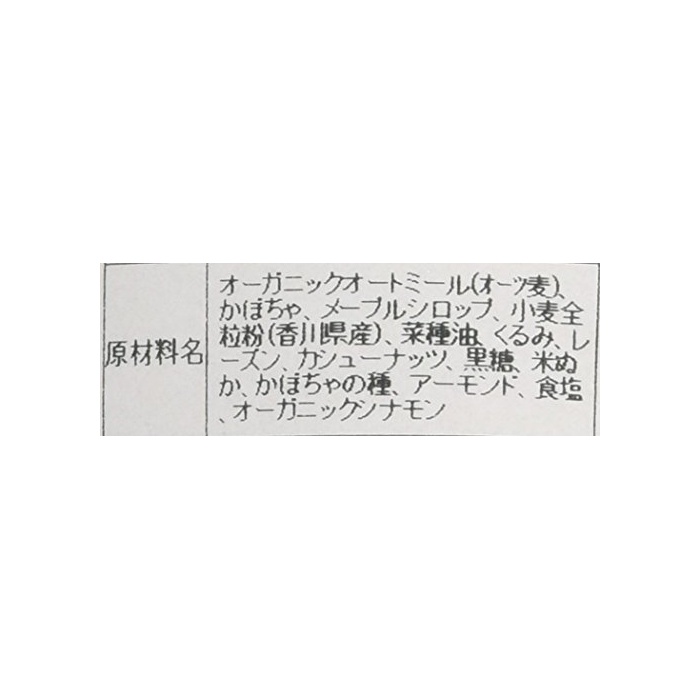 原材料名
オーガニックオートミール(オーツ麦)、
かぼちゃ、メープルシロップ、小麦全
粒粉(香川県産)、菜種油、くるみ、レ
ーズン、カシューナッツ、黒糖、米ぬ
か、かぼちゃの種、アーモンド、食塩
、オーガニックシナモン